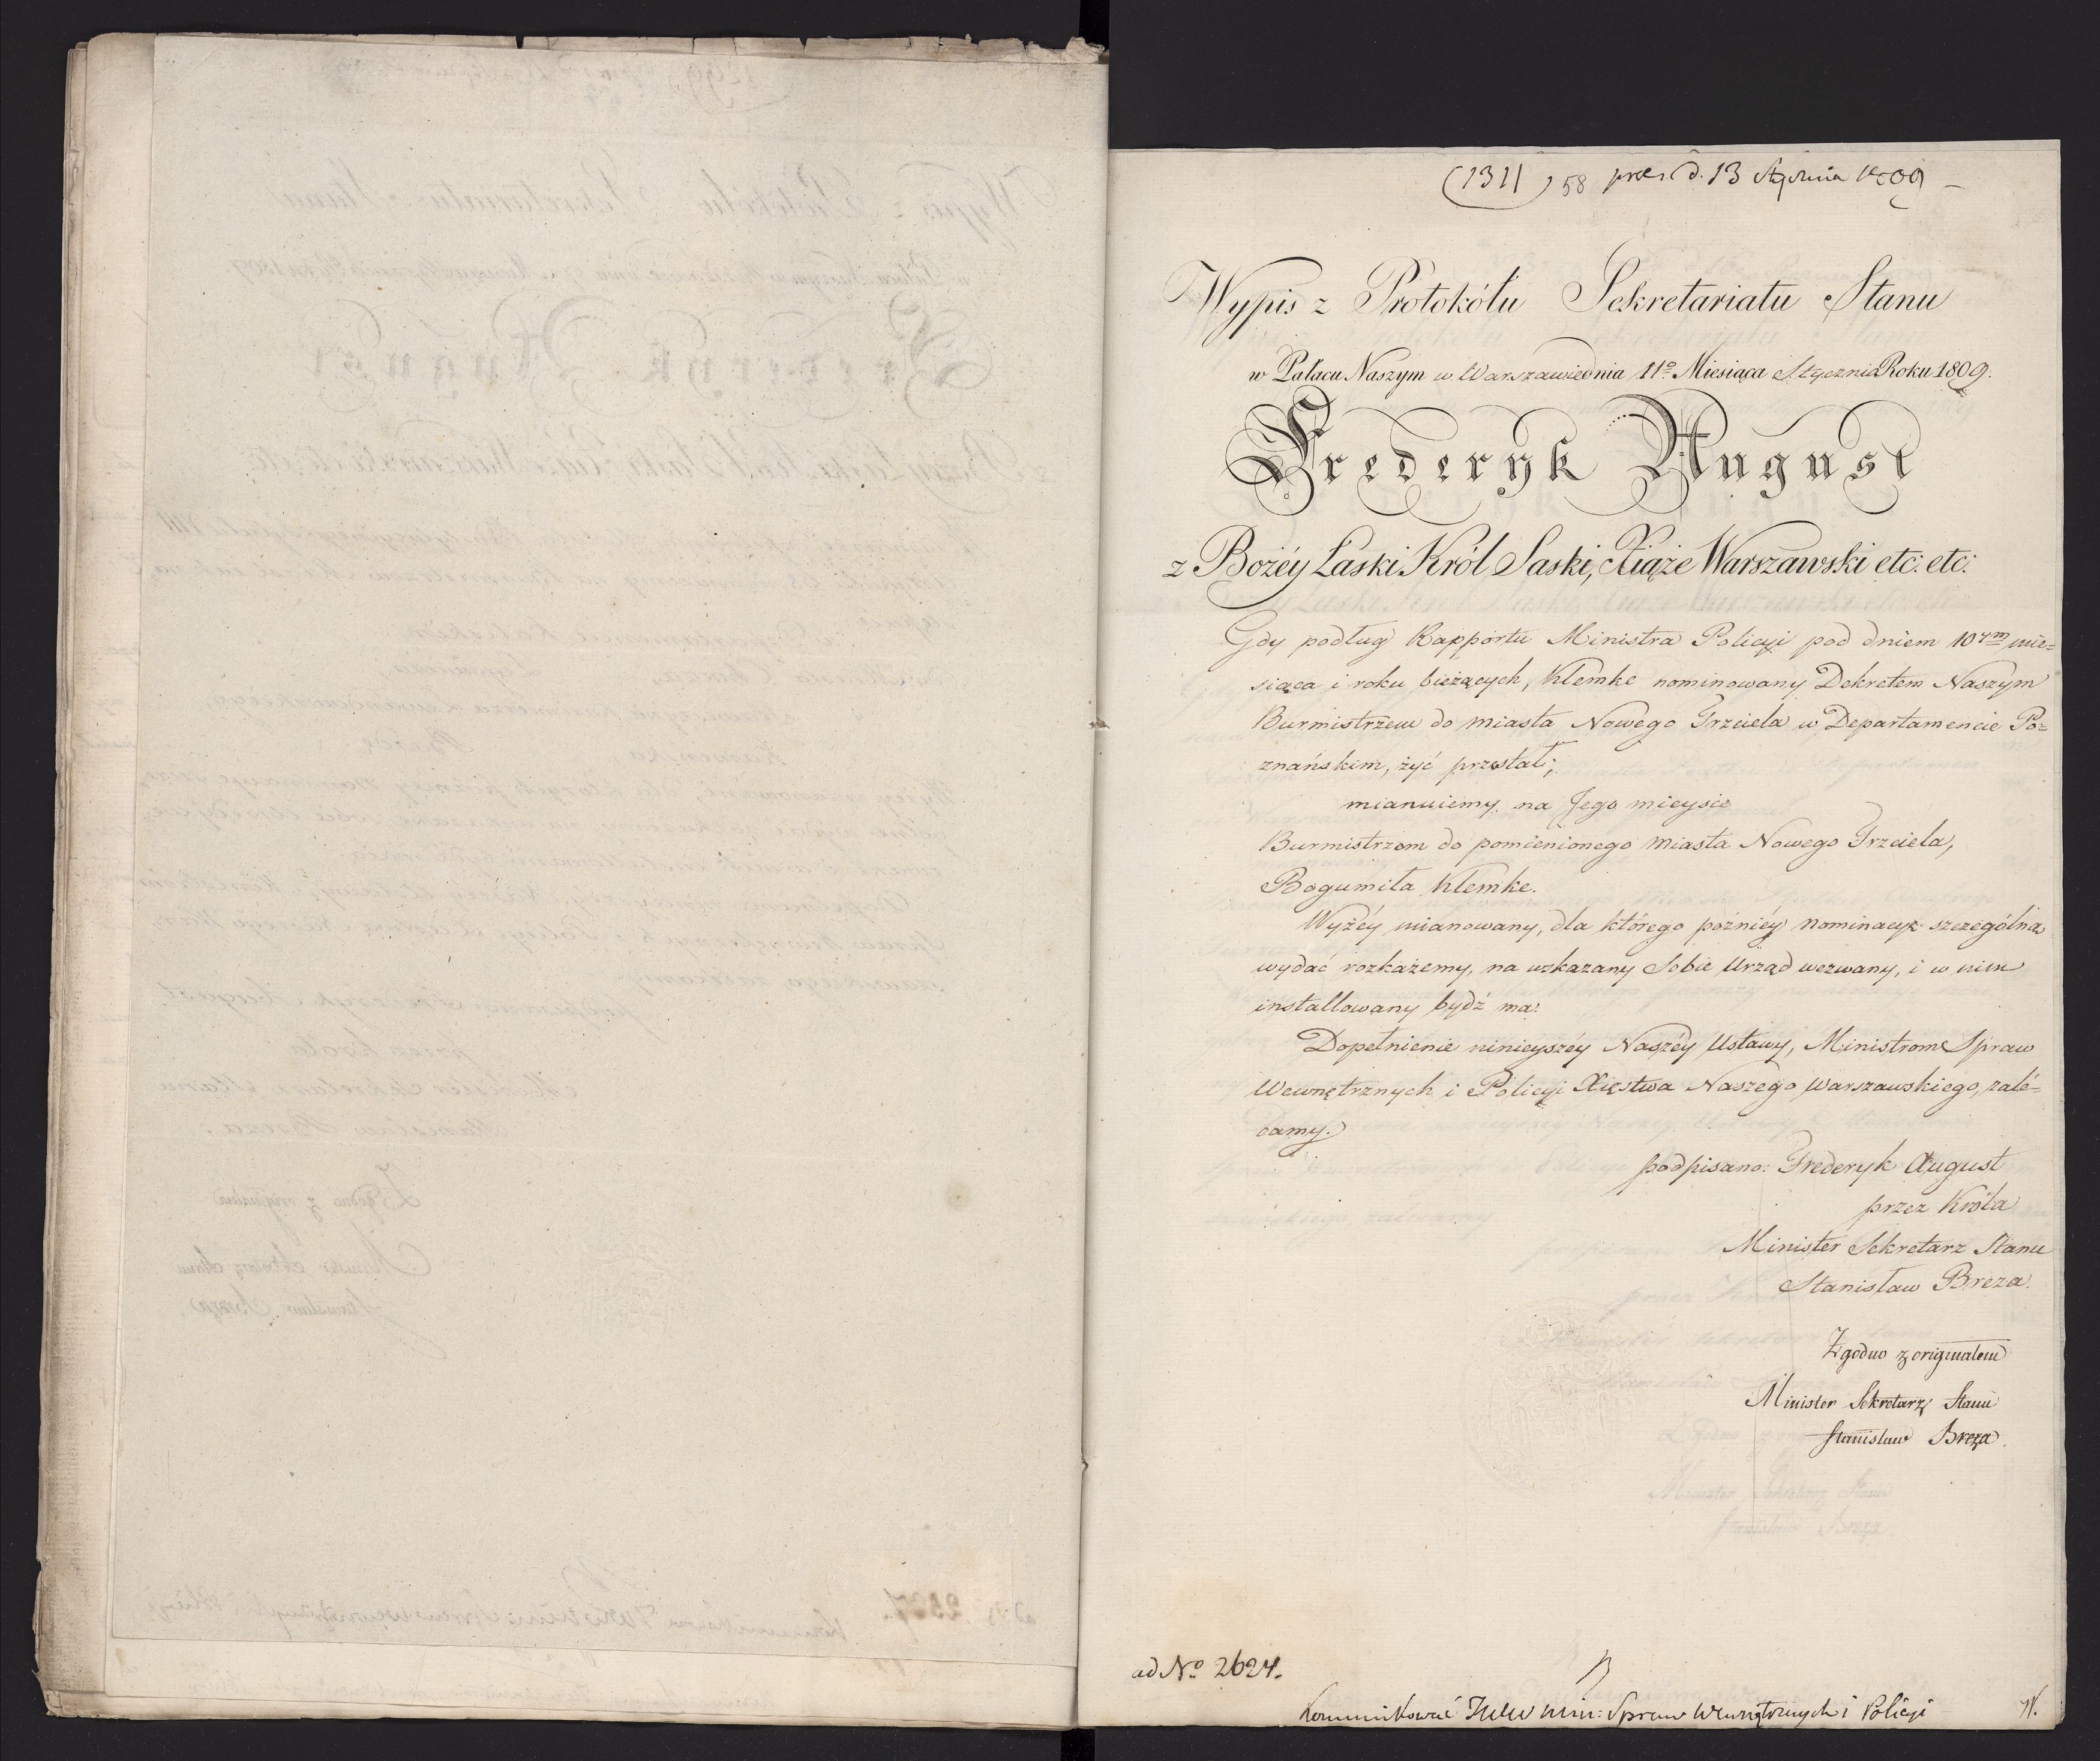 (1311) 58 prez. d. 13 Stycznia 1809
Wypis z Protokółu Sekretariatu Stanu
w Pałacu Naszym w Warszawie dnia 11º Miesiąca Stycznia Roku 1809.
Frederyk August
z Bożéy Łaski Król Saski, Xiąże Warszawski etc: etc:
Gdy podług Rapportu Ministra Policyi pod dniem 10ym mie=
siąca i roku bieżących, Klemke nominowany Dekretem Naszym
Burmistrzem do miasta Nowego Trzciela w Departamencie Po=
znańskim, żyć przestał;
mianuiemy na Jego mieysce
Burmistrzem do pomienionego Miasta Nowego Trzciela,
Bogumiła Klemke.
Wyżéy mianowany, dla którego poźniéy nominacyę szczególną
wydać rozkażemy, na wskazany Sobie Urząd wezwany, i w nim
installowany bydź ma.
Dopełnienie ninieyszéy Naszéy Ustawy, Ministrom Spraw
Wewnętrznych i Policyi Xięstwa Naszego Warszawskiego, zale=
camy.
podpisano: Frederyk August
przez Króla
Minister Sekretarz Stanu
Stanisław Breza.
Zgodno z originalem
Minister Sekretarz Stanu
Stanisław Breza.
ad Nº 2624.
Kommunikować JWW Min: Spraw Wewnętrznych i Policyi